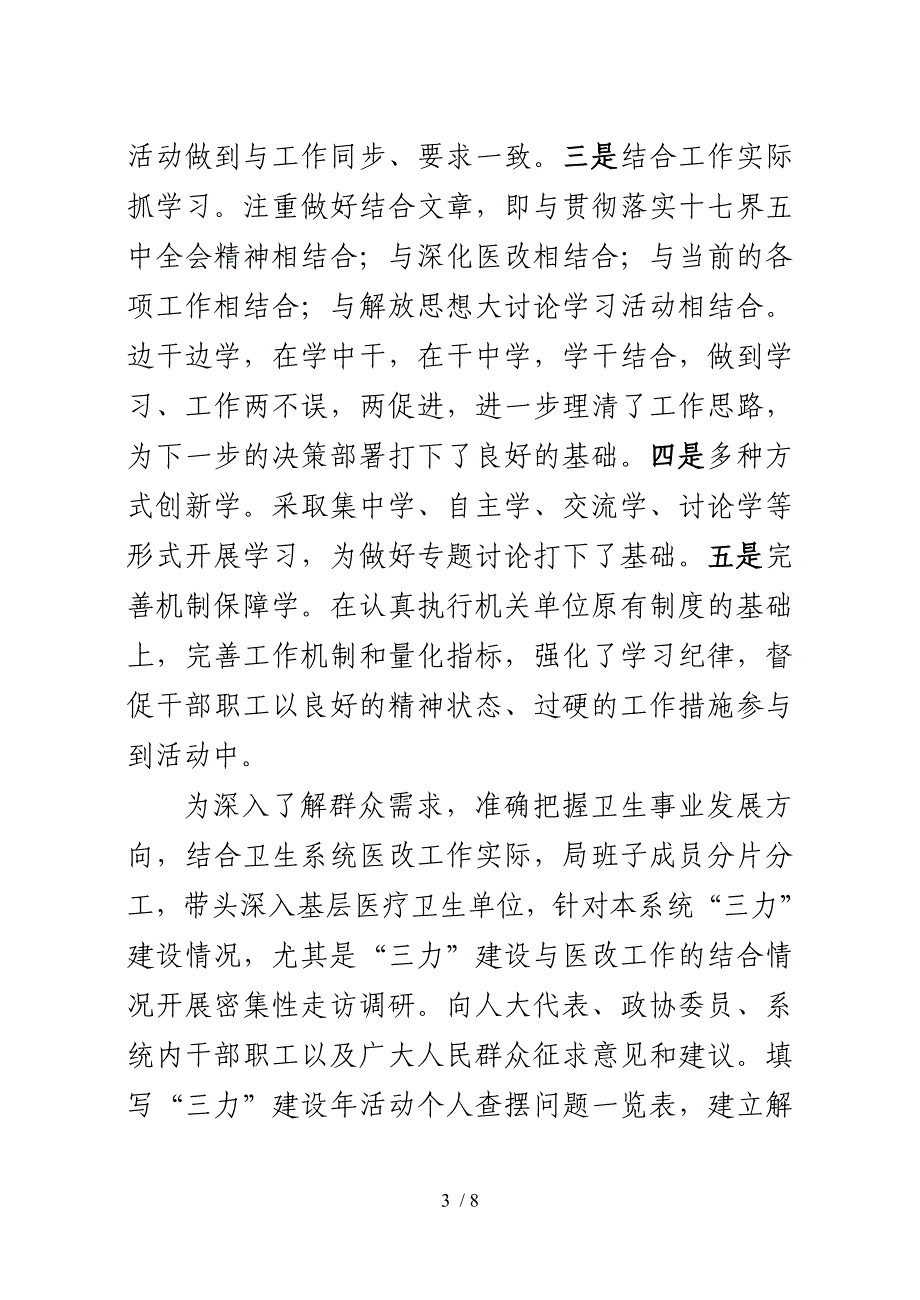 活动做到与工作同步、要求一致。三是结合工作实际
抓学习。注重做好结合文章，即与贯彻落实十七界五
中全会精神相结合；与深化医改相结合；与当前的各
项工作相结合；与解放思想大讨论学习活动相结合。
边干边学，在学中干，在干中学，学干结合，做到学
习、工作两不误，两促进，进一步理清了工作思路，
为下一步的决策部署打下了良好的基础。四是多种方
式创新学。采取集中学、自主学、交流学、讨论学等
形式开展学习，为做好专题讨论打下了基础。五是完
善机制保障学。在认真执行机关单位原有制度的基础
上，完善工作机制和量化指标，强化了学习纪律，督
促干部职工以良好的精神状态、过硬的工作措施参与
到活动中。
为深入了解群众需求，准确把握卫生事业发展方
向，结合卫生系统医改工作实际，局班子成员分片分
工，带头深入基层医疗卫生单位，针对本系统“三力”
建设情况，尤其是“三力”建设与医改工作的结合情
况开展密集性走访调研。向人大代表、政协委员、系
统内干部职工以及广大人民群众征求意见和建议。填
写“三力”建设年活动个人查摆问题一览表，建立解
3 / 8